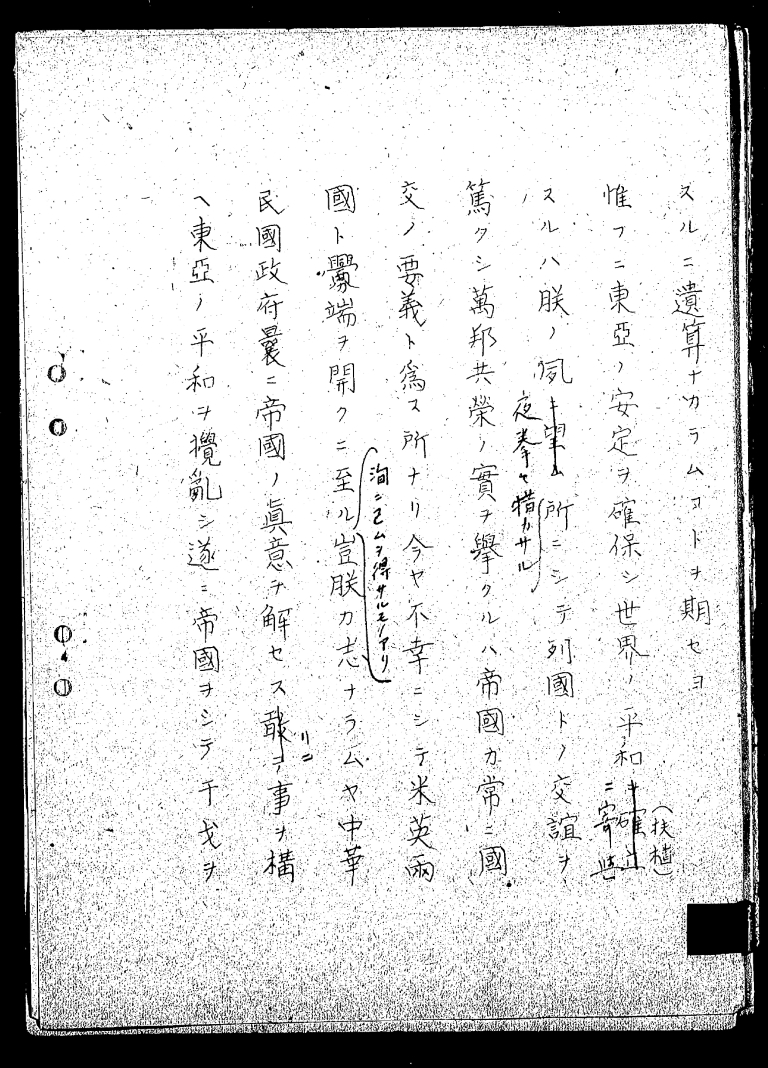 スルニ遺算ナカラムコトヲ期セヨ
惟フニ東亞ノ安定ヲ確保シ世界ノ平和ヲ確立
(扶植)
ニ寄與
スルハ朕ノ夙ニ望ム所ニシテ列國トノ交誼ヲ
夜拳々措カサル
篤クシ萬邦共榮ノ實ヲ擧クルハ帝國カ常ニ國
交ノ要義ト爲ス所ナリ今ヤ不幸ニシテ米英兩
洵ニ已ムヲ得サルモノアリ
國ト釁端ヲ開クニ至ル豈朕カ志ナラムヤ中華
民國政府曩ニ帝國ノ眞意ヲ解セス敢テ事ヲ構
リニ
ヘ東亞ノ平和ヲ攪亂シ遂ニ帝國ヲシテ干戈ヲ